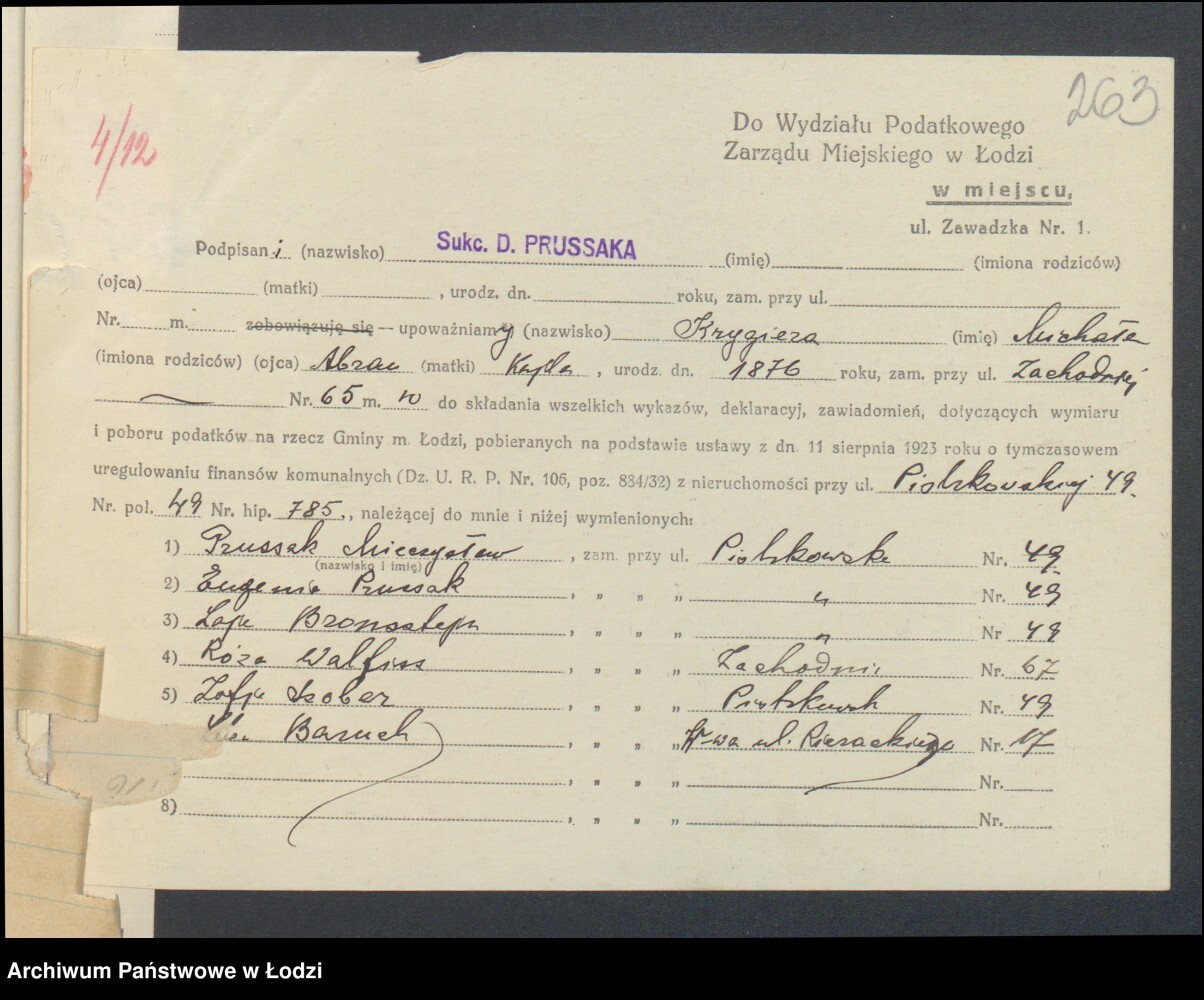 263
4/12
Do Wydziału Podatkowego
Zarządu Miejskiego w Łodzi
w miejscu,
ul. Zawadzka Nr. 1.
Podpisani (nazwisko) Sukc. D. PRUSSAKA (imię) (imiona rodziców)
(ojca) (matki) , urodz. dn. roku, zam. przy ul.
Nr. m. zobowiązuję się — upoważniamy (nazwisko) Krygiera (imię) Michała
(imiona rodziców) (ojca) Abram (matki) Kajla , urodz. dn. 1876 roku, zam. przy ul. Zachodniej
Nr. 65 m. 10 do składania wszelkich wykazów, deklaracyj, zawiadomień, dotyczących wymiaru
i poboru podatków na rzecz Gminy m. Łodzi, pobieranych na podstawie ustawy z dn. 11 sierpnia 1923 roku o tymczasowem
uregulowaniu finansów komunalnych (Dz. U. R. P. Nr. 106, poz. 884/32) z nieruchomości przy ul. Piotrkowskiej 49.
Nr. poł. 49 Nr. hip. 785., należącej do mnie i niżej wymienionych:
1) Prussak Mieczysław , zam. przy ul. Piotrkowska Nr. 49
(nazwisko i imię)
2) Eugenia Prussak , „ „ „ „ Nr. 49
3) Bronsztejn , „ „ „ „ Nr 49
4) Róża Walfisz , „ „ „ Zachodnia Nr. 67
5) Zofja , „ „ „ Piotrkowsk Nr. 49
Baruch , „ „ „ W-wa ul. Pierackiego Nr. 17
, „ „ „ Nr.
8) , „ „ „ Nr.
Archiwum Państwowe w Łodzi